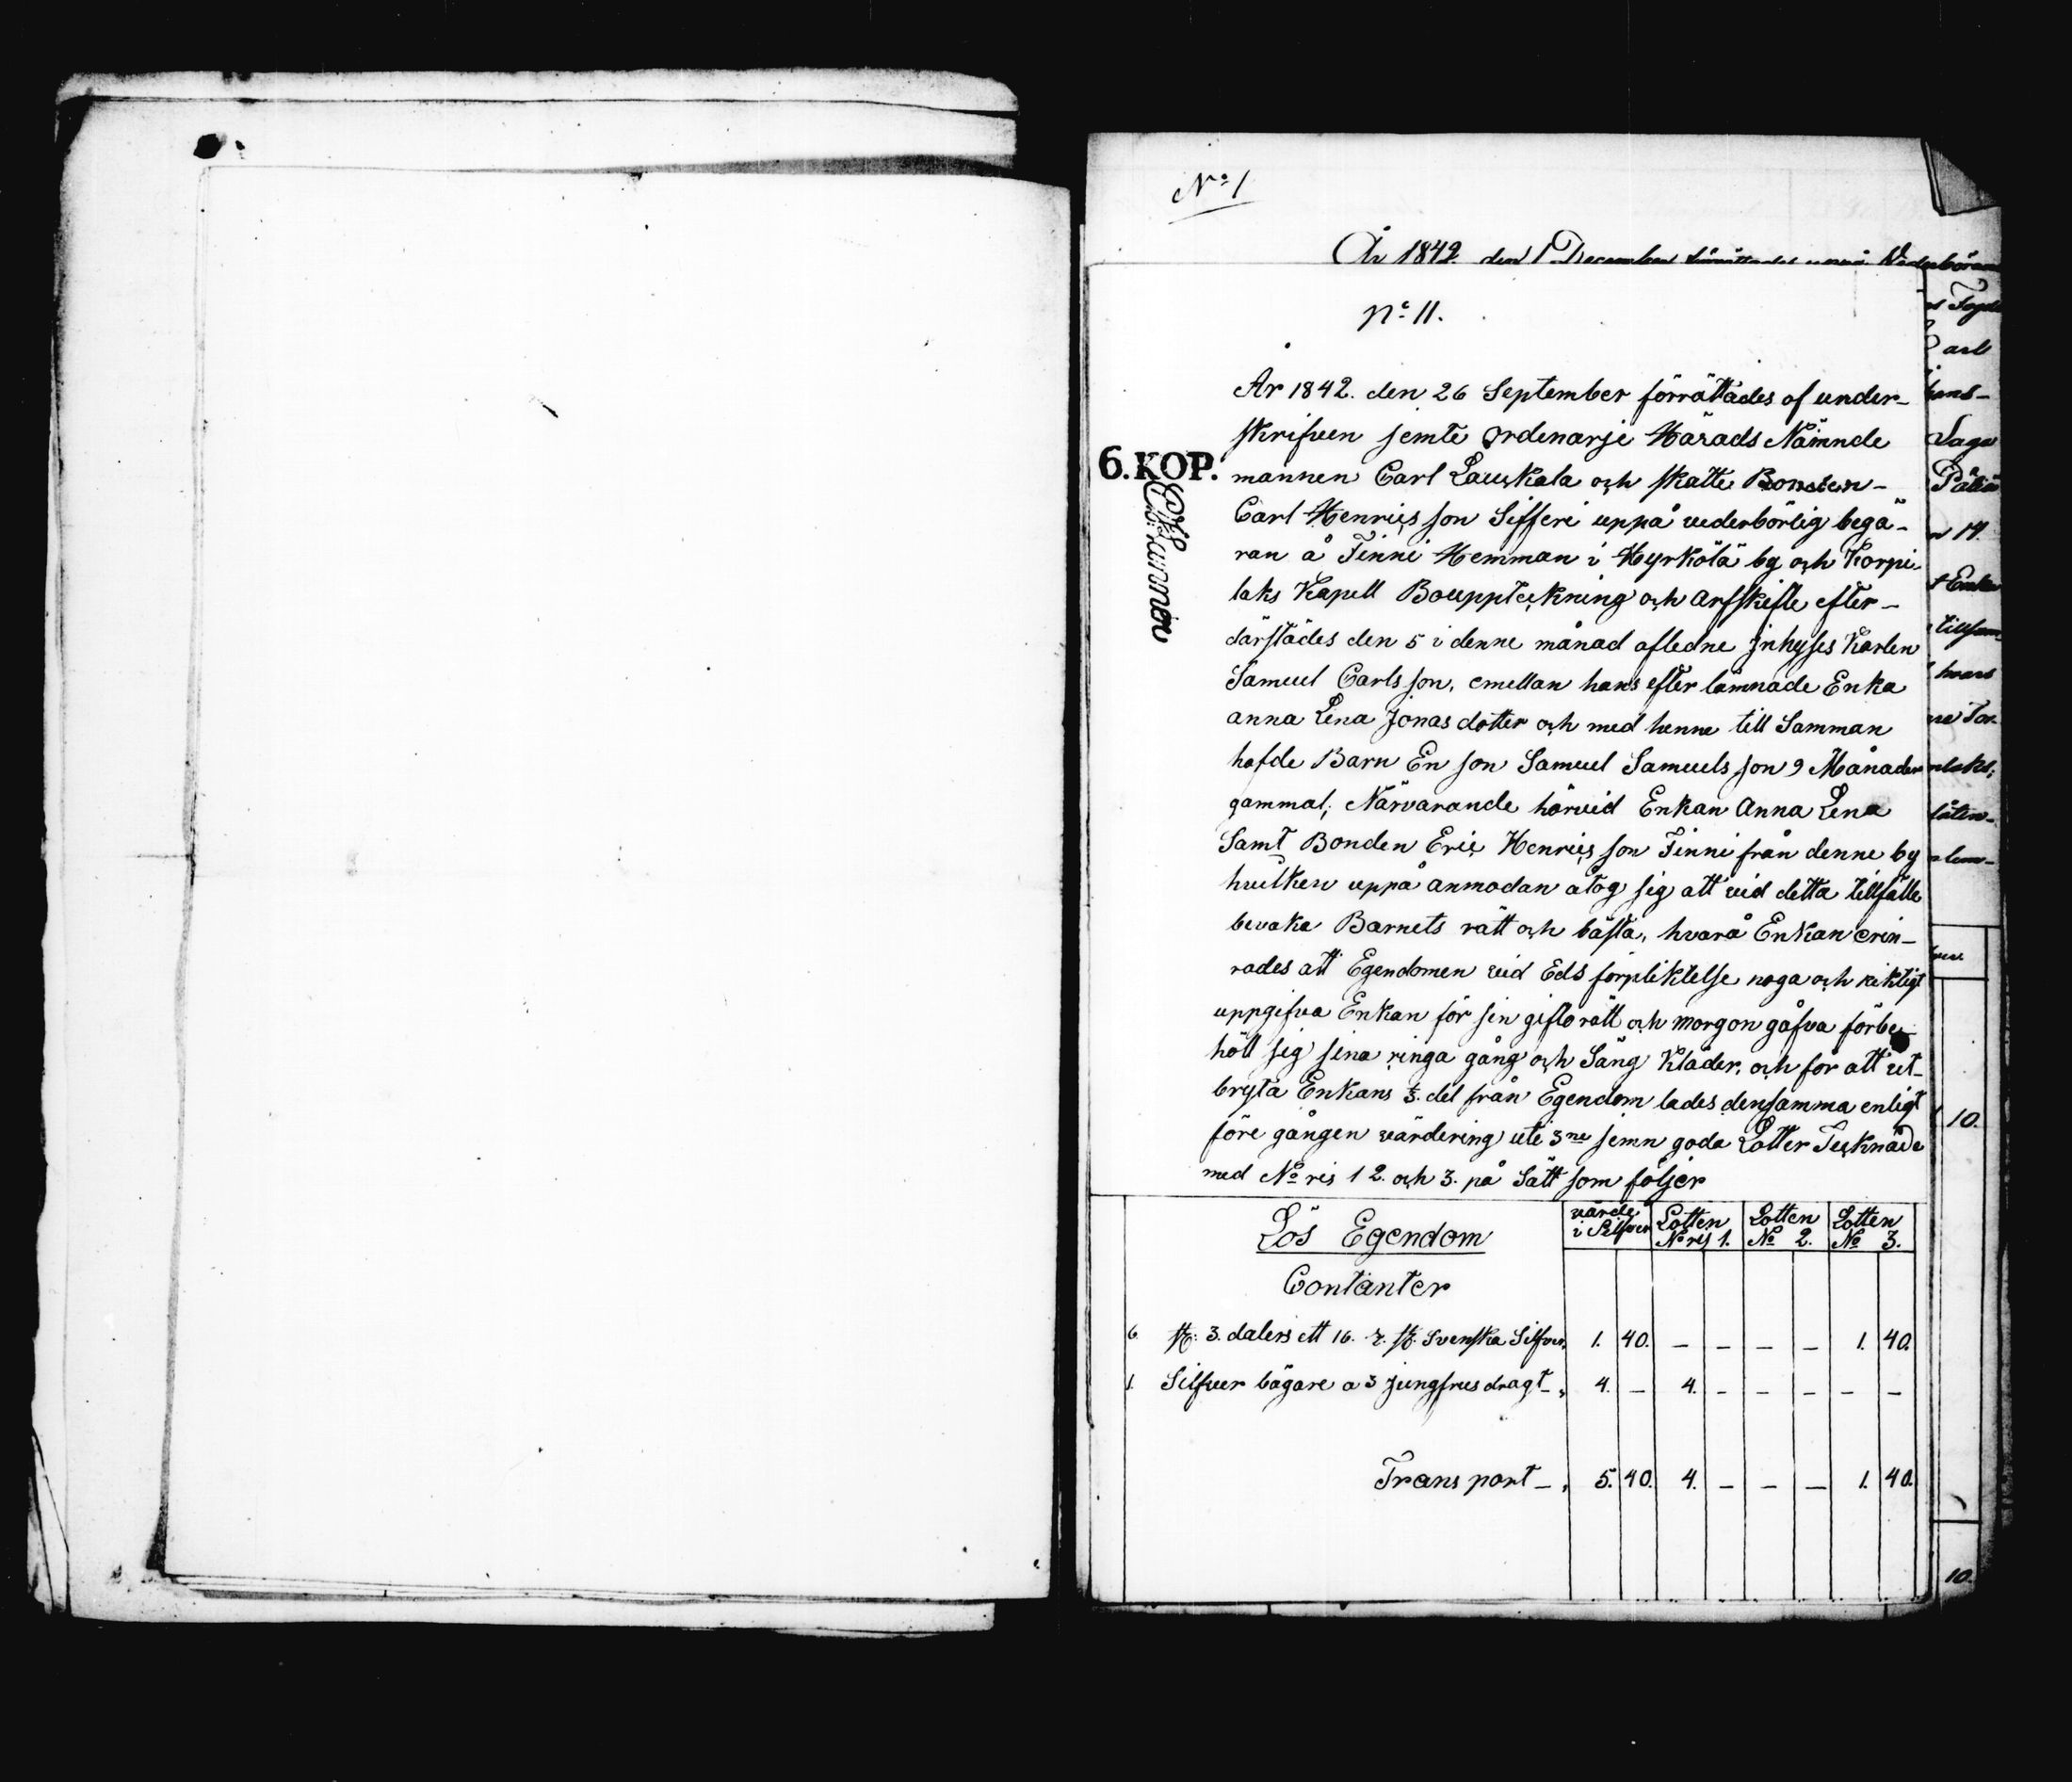 No 1
År 1842. den 1 December
No 11.
År 1842. den 26 September förrättades af under-
skrifven jemte Ordenarje Härads Nämnde
6. KOP. mannen Carl Lauskala och skatte Bonden
Carl Henrics son Sifferi uppå vederbörlig begä-
ran å Finni Hemman i Hyrkölä by och Korpi-
laks Kapell Bouppteckning och arfskifte efter-
därstädes den 5 i denne månad afledne Jnhyses Karlen
Samuel Carls son, emellan hans efter lämnade Enka
anna Lena Jonas dotter och med henne till Samman
hafde Barn En son Samuel Samuels son 9 Månader
gammal, Närvarande härvid Enkan Anna Lena
Samt Bonden Eric Henrics son Finni från denne by
hvilken uppå anmodan åtog sig att vid detta tillfälle
bevaka Barnets rätt och bästa, hvarå Enkan erin-
rades att Egendomen vid Eds förpliktelse noga och riktigt
uppgifva Enkan för sin gifto rätt och morgon gåfva förbe-
höll sig sina ringa gång och Säng Kläder, och för att ut-
bryta Enkans 1/3. del från Egendom lades densamma enligt
före gången värdering uti 3ne jemn goda Lotter Tecknade
med No ris 1 2. och 3. på Sätt som följer
Lös Egendom värde i Silfver Lotten No ris 1. Lotten No 2. Lotten No 3.
Contanter
6 st: 3. dalers ett 16. s. st. Svenska Silfver, 1. 40. – – – – 1. 40.
1. Silfver bägare a 3 jungfrus dragt – „ 4. – 4. – – – – –
Trans port – „ 5. 40. 4. – – – 1. 40.
10.
10.